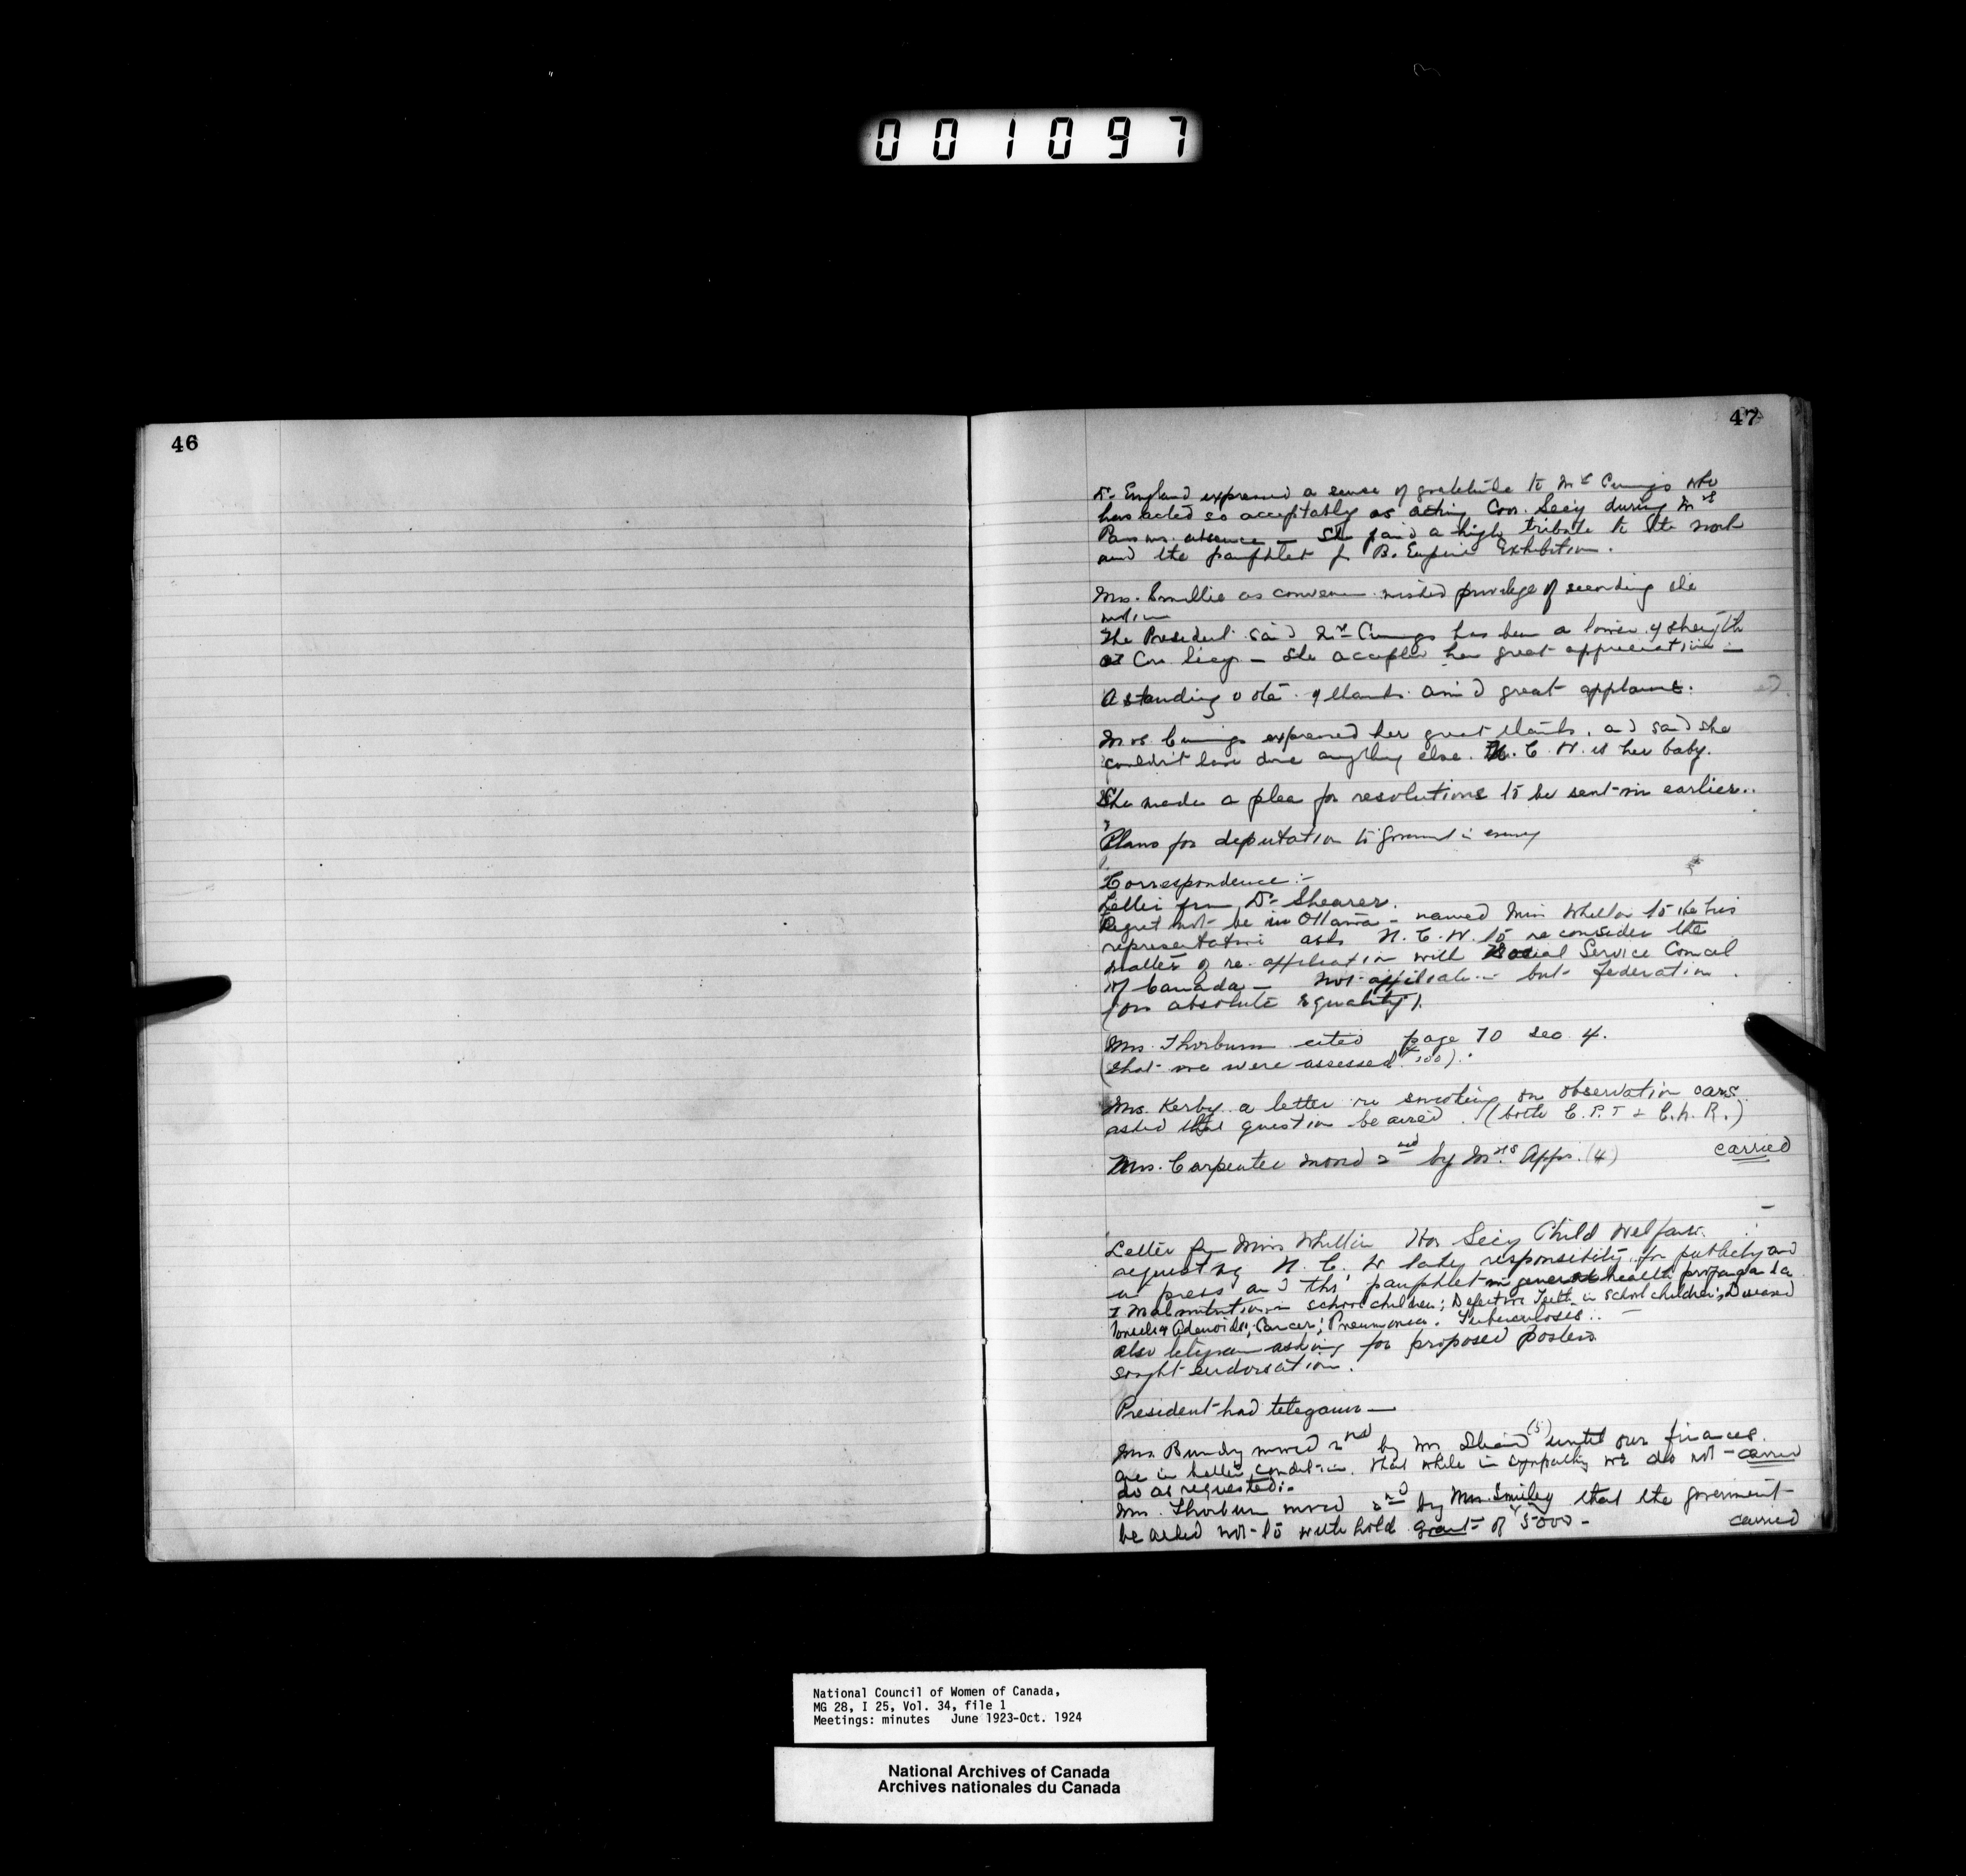 001097
46
47
Dr England expressed a sense of gratitude to Mrs Cumings who
has acted so acceptably as acting Corr. Secy during Mrs
absence — She paid a high tribute to the work
and the pamphlet for B. Empire Exhibition.
Mrs. Smillie as convener wished privilege of seconding the
motion
The President said Mrs Cumings has been a tower of strength
as Corr. Secy — She accepted her great appreciation —
A standing vote of thanks amid great applause.
Mrs. Cumings expressed her great thanks, and said she
couldn't have done anything else. N. C. W. is her baby.
She made a plea for resolutions to be sent in earlier..
Plans for deputation to Government in
Correspondence :-
Letter from Dr Shearer.
Regret not be in Ottawa - named Miss Whitton to be his
representative asks N. C. W. to reconsider the
matter of re. affiliation with Social Service Council
of Canada — not affiliation but federation.
(on absolute equality).
Mrs. Thorburn cited page 70 Sec. 4.
(that we were assessed 100).
Mrs. Kerby a letter re smoking on observation cars
asked that question be aired. (both C. P. T & C. N. R.)
Mrs. Carpenter moved 2nd by Mrs. Apps. (4) carried
Letter from Miss Whitton Hon Secy Child Welfare.
requesting N. C. W take responsibility for publicity and
in press and this pamphlet in general health propaganda
I Malnutrition in school children; Defective Teeth in School children; Diseased
Tonsils & Adenoids; Cancer; Pneumonia. Tuberculosis..
also telegram asking for proposed posters
sought endorsation.
President had telegram —
Mrs. Bundy moved 2nd by Mrs (5) until our finances
are in better condition. that while in sympathy we do not - carried
do as requested.
Mrs. Thorburn moved 2nd by Mrs. Smiley that the government
be asked not to withhold grant of 5000 - carried
National Council of Women of Canada,
MG 28, I 25, Vol. 34, file 1
Meetings: minutes June 1923-Oct. 1924
National Archives of Canada
Archives nationales du Canada